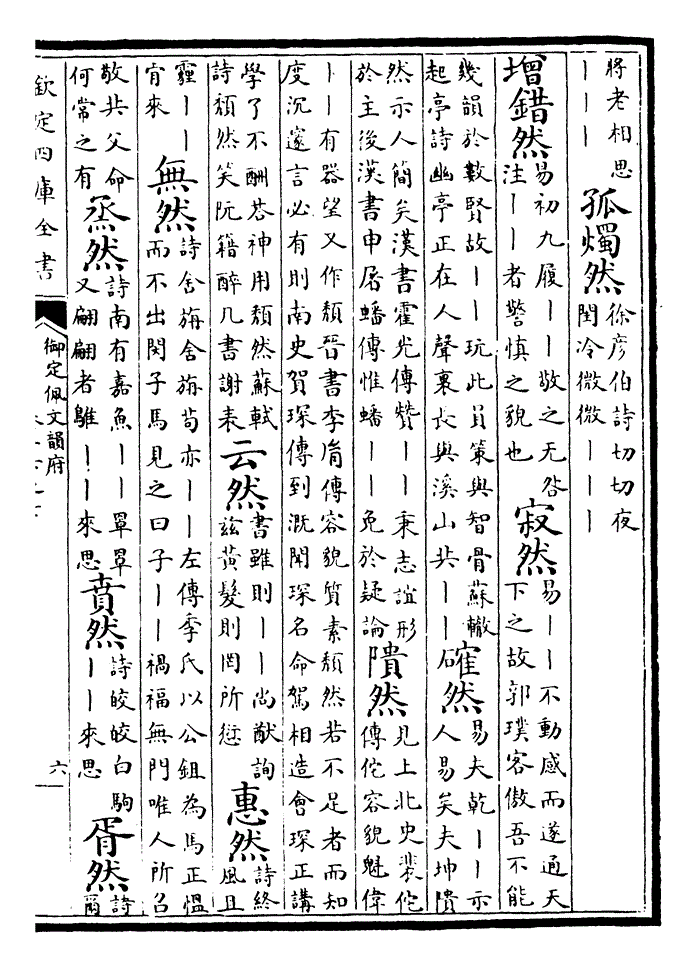 將老相思
｜｜｜
孤燭然
徐彥伯詩切切夜
閨冷微微｜｜｜
增錯然
易初九履｜｜敬之无咎
注｜｜者警慎之貌也
寂然
易｜｜不動感而遂通天
下之故郭璞客傲吾不能
幾韻於數賢故｜｜玩此員策與智骨蘇轍
起亭詩幽亭正在人聲裏長與溪山共｜｜
確然
易夫乾｜｜示
人易矣夫坤隤
然示人簡矣漢書霍光傳贊｜｜秉志誼形
於主後漢書申屠蟠傳惟蟠｜｜免於疑論
隤然
見上北史裴佗
傳佗容貌魁偉
｜｜有器望又作頹晉書李胤傳容貌質素頹然若不足者而知
度沉邃言必有則南史賀琛傳到溉聞琛名命駕相造會琛正講
學了不酬荅神用頹然蘇軾
詩頹然笑阮籍醉几書謝表
云然
書雖則｜｜尚猷詢
茲黃髮則罔所愆
惠然
詩終
風且
霾｜｜
肎來
無然
詩舍旃舍旃苟亦｜｜左傳季氏以公鉏為馬正慍
而不出閔子馬見之曰子｜｜禍福無門唯人所召
敬共父命
何常之有
烝然
詩南有嘉魚｜｜罩罩
又翩翩者鵻｜｜來思
賁然
詩皎皎白駒
｜｜來思
胥然
詩
爾
欽定四庫全書
御定佩文韻府
六